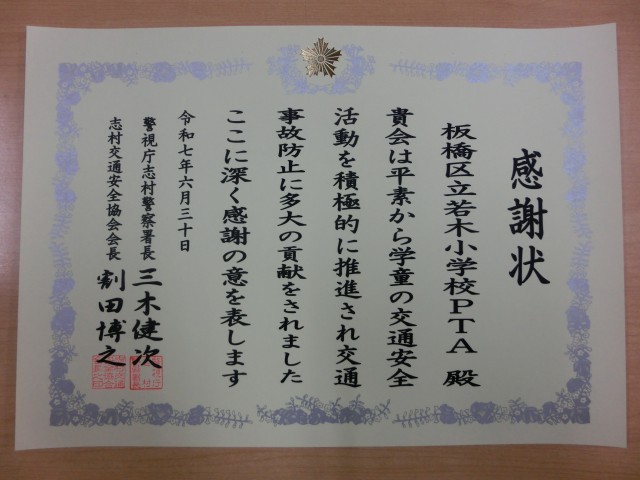 感謝状
板橋区立若木小学校PTA 殿
貴会は平素から学童の交通安全
活動を積極的に推進され交通
事故防止に多大の貢献をされました
ここに深く感謝の意を表します
令和七年六月三十日
警視庁志村警察署長 三木健次
志村交通安全協会会長 割田博之